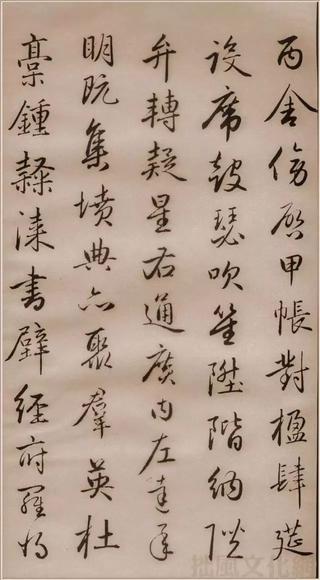 丙舍傍啓甲帳對楹肆筵
設席鼓瑟吹笙陞階納陛
弁轉疑星右通廣內左達承
明既集墳典亦聚羣英杜
稾鍾隸漆書壁經府羅將
拙風文化網